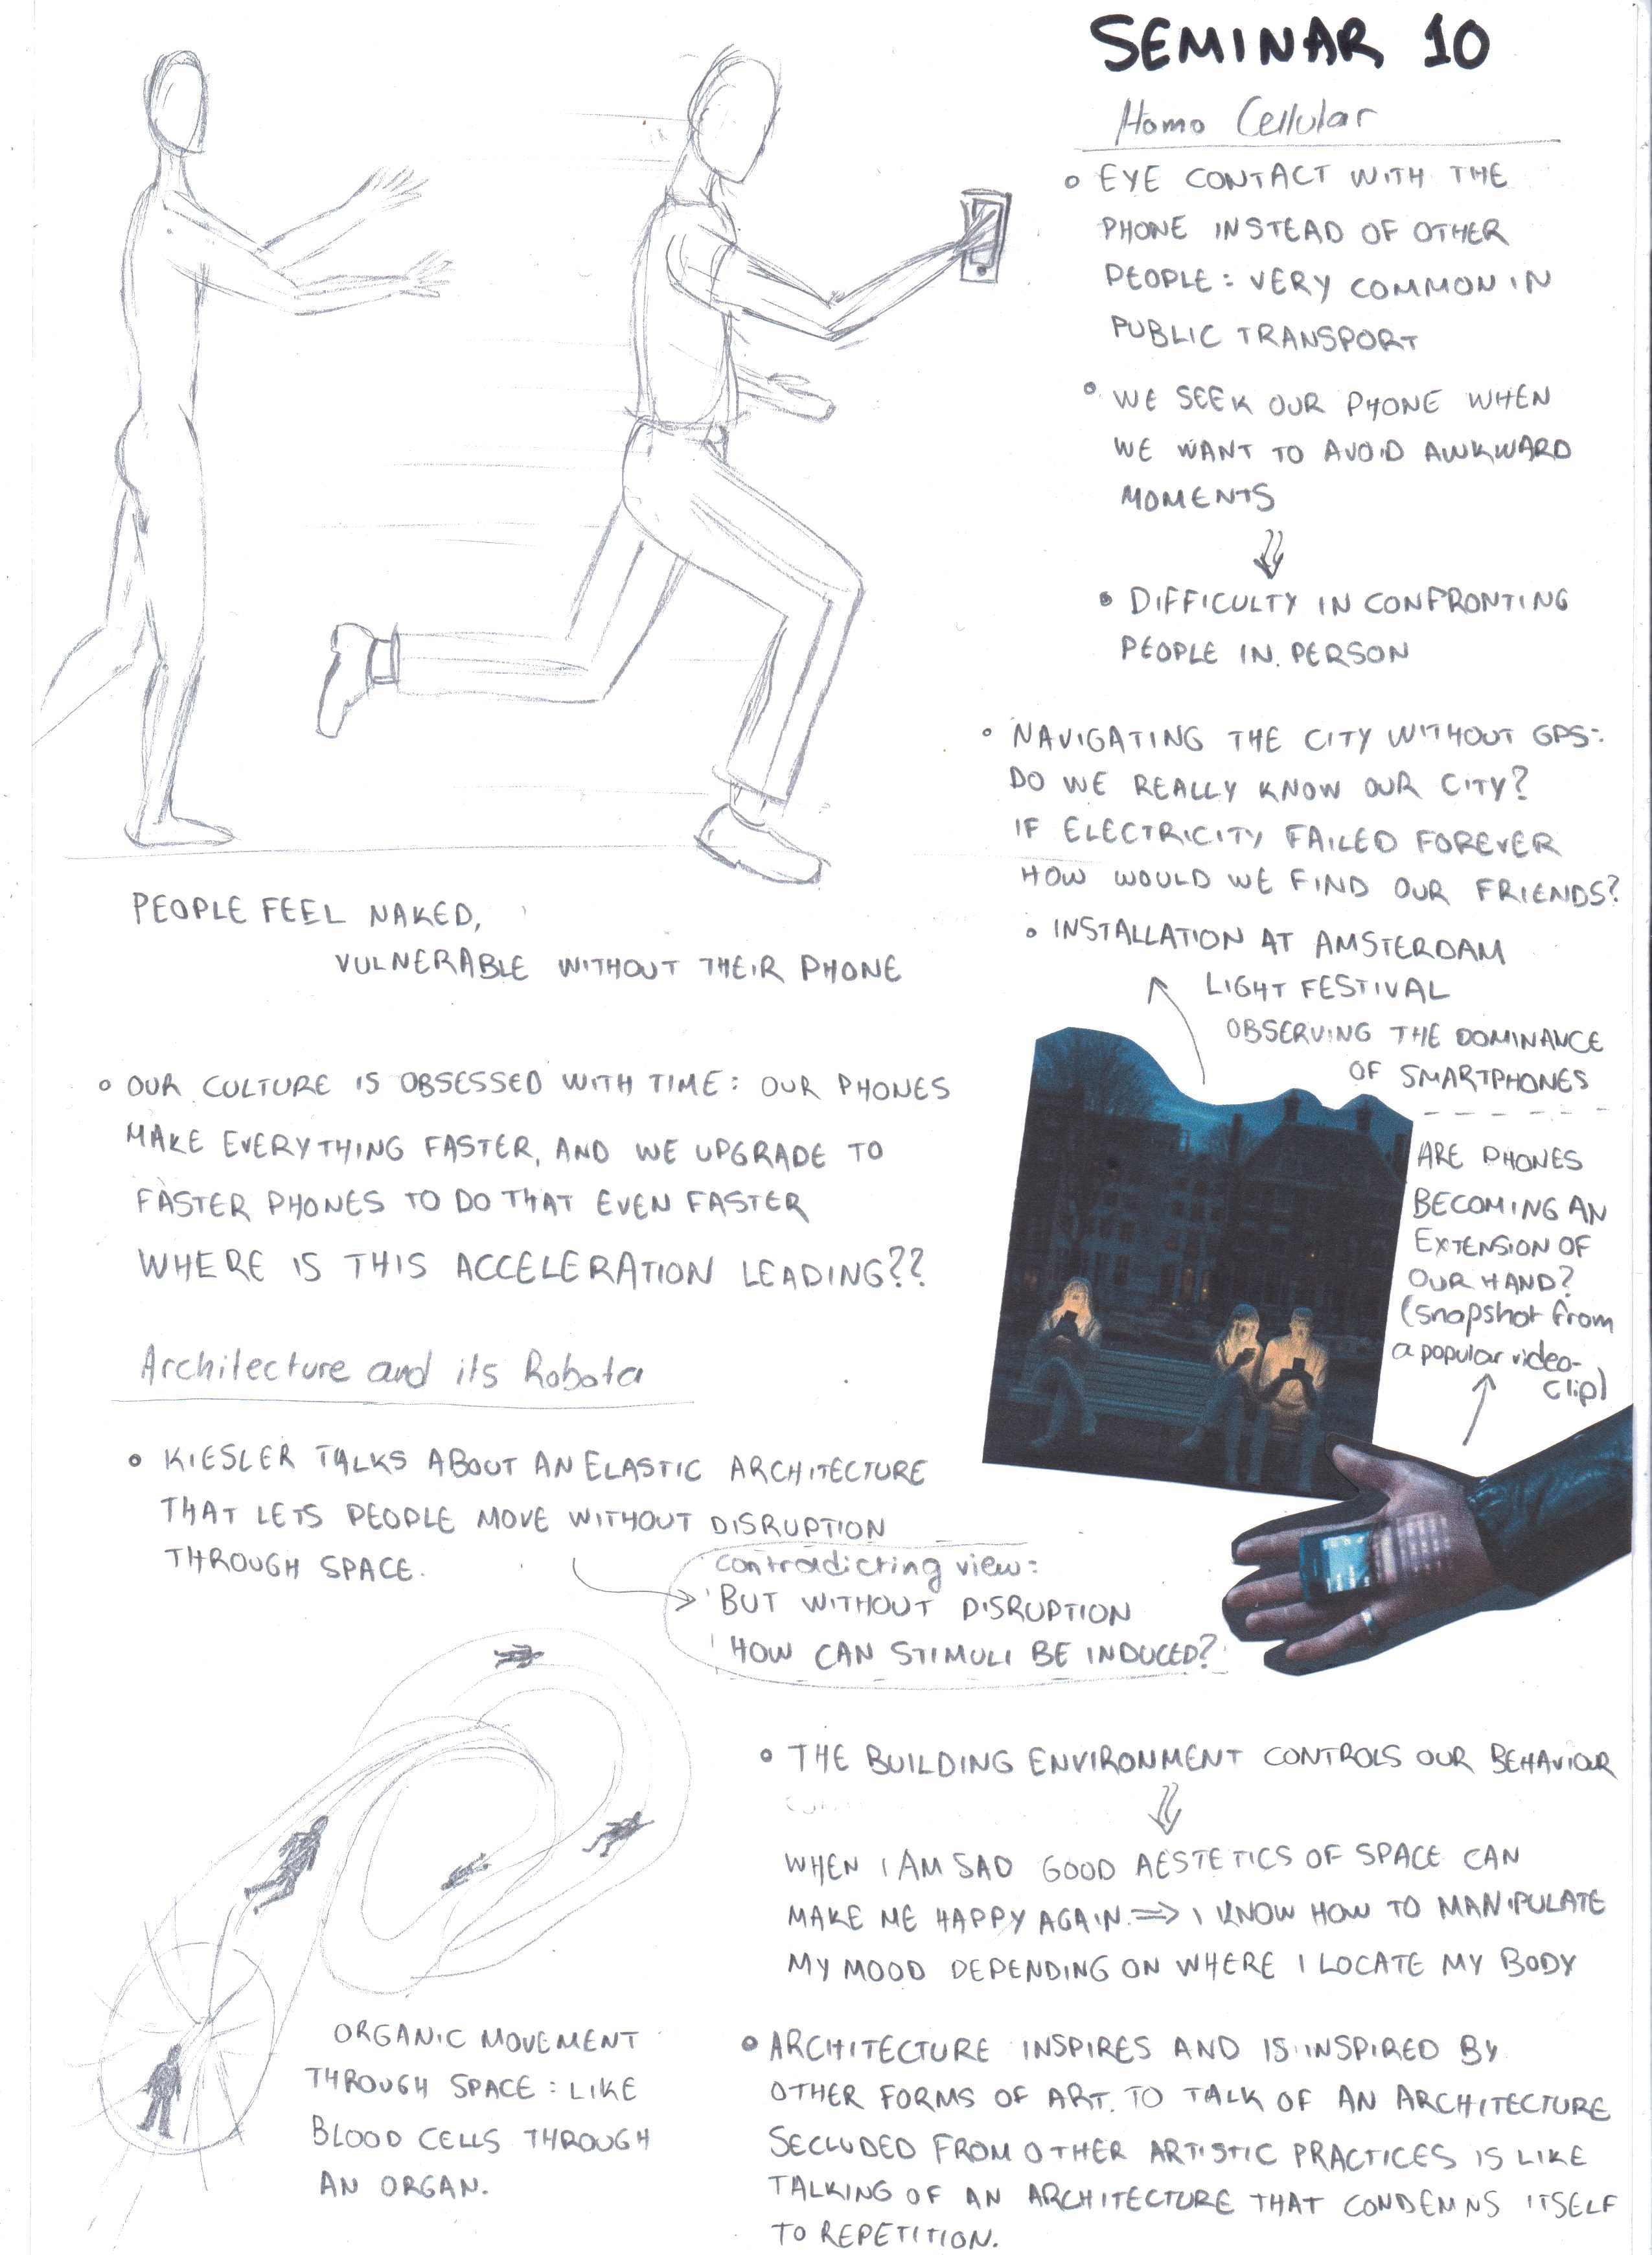 SEMINAR 10
Homo Cellular
EYE CONTACT WITH THE
PHONE INSTEAD OF OTHER
PEOPLE: VERY COMMON IN
PUBLIC TRANSPORT
WE SEEK OUR PHONE WHEN
WE WANT TO AVOID AWKWARD
MOMENTS
DIFFICULTY IN CONFRONTING
PEOPLE IN PERSON
NAVIGATING THE CITY WITHOUT GPS:
DO WE REALLY KNOW OUR CITY?
IF ELECTRICITY FAILED FOREVER
HOW WOULD WE FIND OUR FRIENDS?
INSTALLATION AT AMSTERDAM
LIGHT FESTIVAL
OBSERVING THE DOMINANCE
OF SMARTPHONES
ARE PHONES
BECOMING AN
EXTENSION OF
OUR HAND?
(snapshot from
a popular video-
clip)
PEOPLE FEEL NAKED,
VULNERABLE WITHOUT THEIR PHONE
OUR CULTURE IS OBSESSED WITH TIME: OUR PHONES
MAKE EVERYTHING FASTER, AND WE UPGRADE TO
FASTER PHONES TO DO THAT EVEN FASTER
WHERE IS THIS ACCELERATION LEADING??
Architecture and its Robota
KIESLER TALKS ABOUT AN ELASTIC ARCHITECTURE
THAT LETS PEOPLE MOVE WITHOUT DISRUPTION
THROUGH SPACE.
contradicting view:
BUT WITHOUT DISRUPTION
HOW CAN STIMULI BE INDUCED?
THE BUILDING ENVIRONMENT CONTROLS OUR BEHAVIOUR
WHEN I AM SAD GOOD AESTETICS OF SPACE CAN
MAKE ME HAPPY AGAIN. ⇒ I KNOW HOW TO MANIPULATE
MY MOOD DEPENDING ON WHERE I LOCATE MY BODY
ORGANIC MOVEMENT
THROUGH SPACE: LIKE
BLOOD CELLS THROUGH
AN ORGAN.
ARCHITECTURE INSPIRES AND IS INSPIRED BY
OTHER FORMS OF ART. TO TALK OF AN ARCHITECTURE
SECLUDED FROM OTHER ARTISTIC PRACTICES IS LIKE
TALKING OF AN ARCHITECTURE THAT CONDEMNS ITSELF
TO REPETITION.